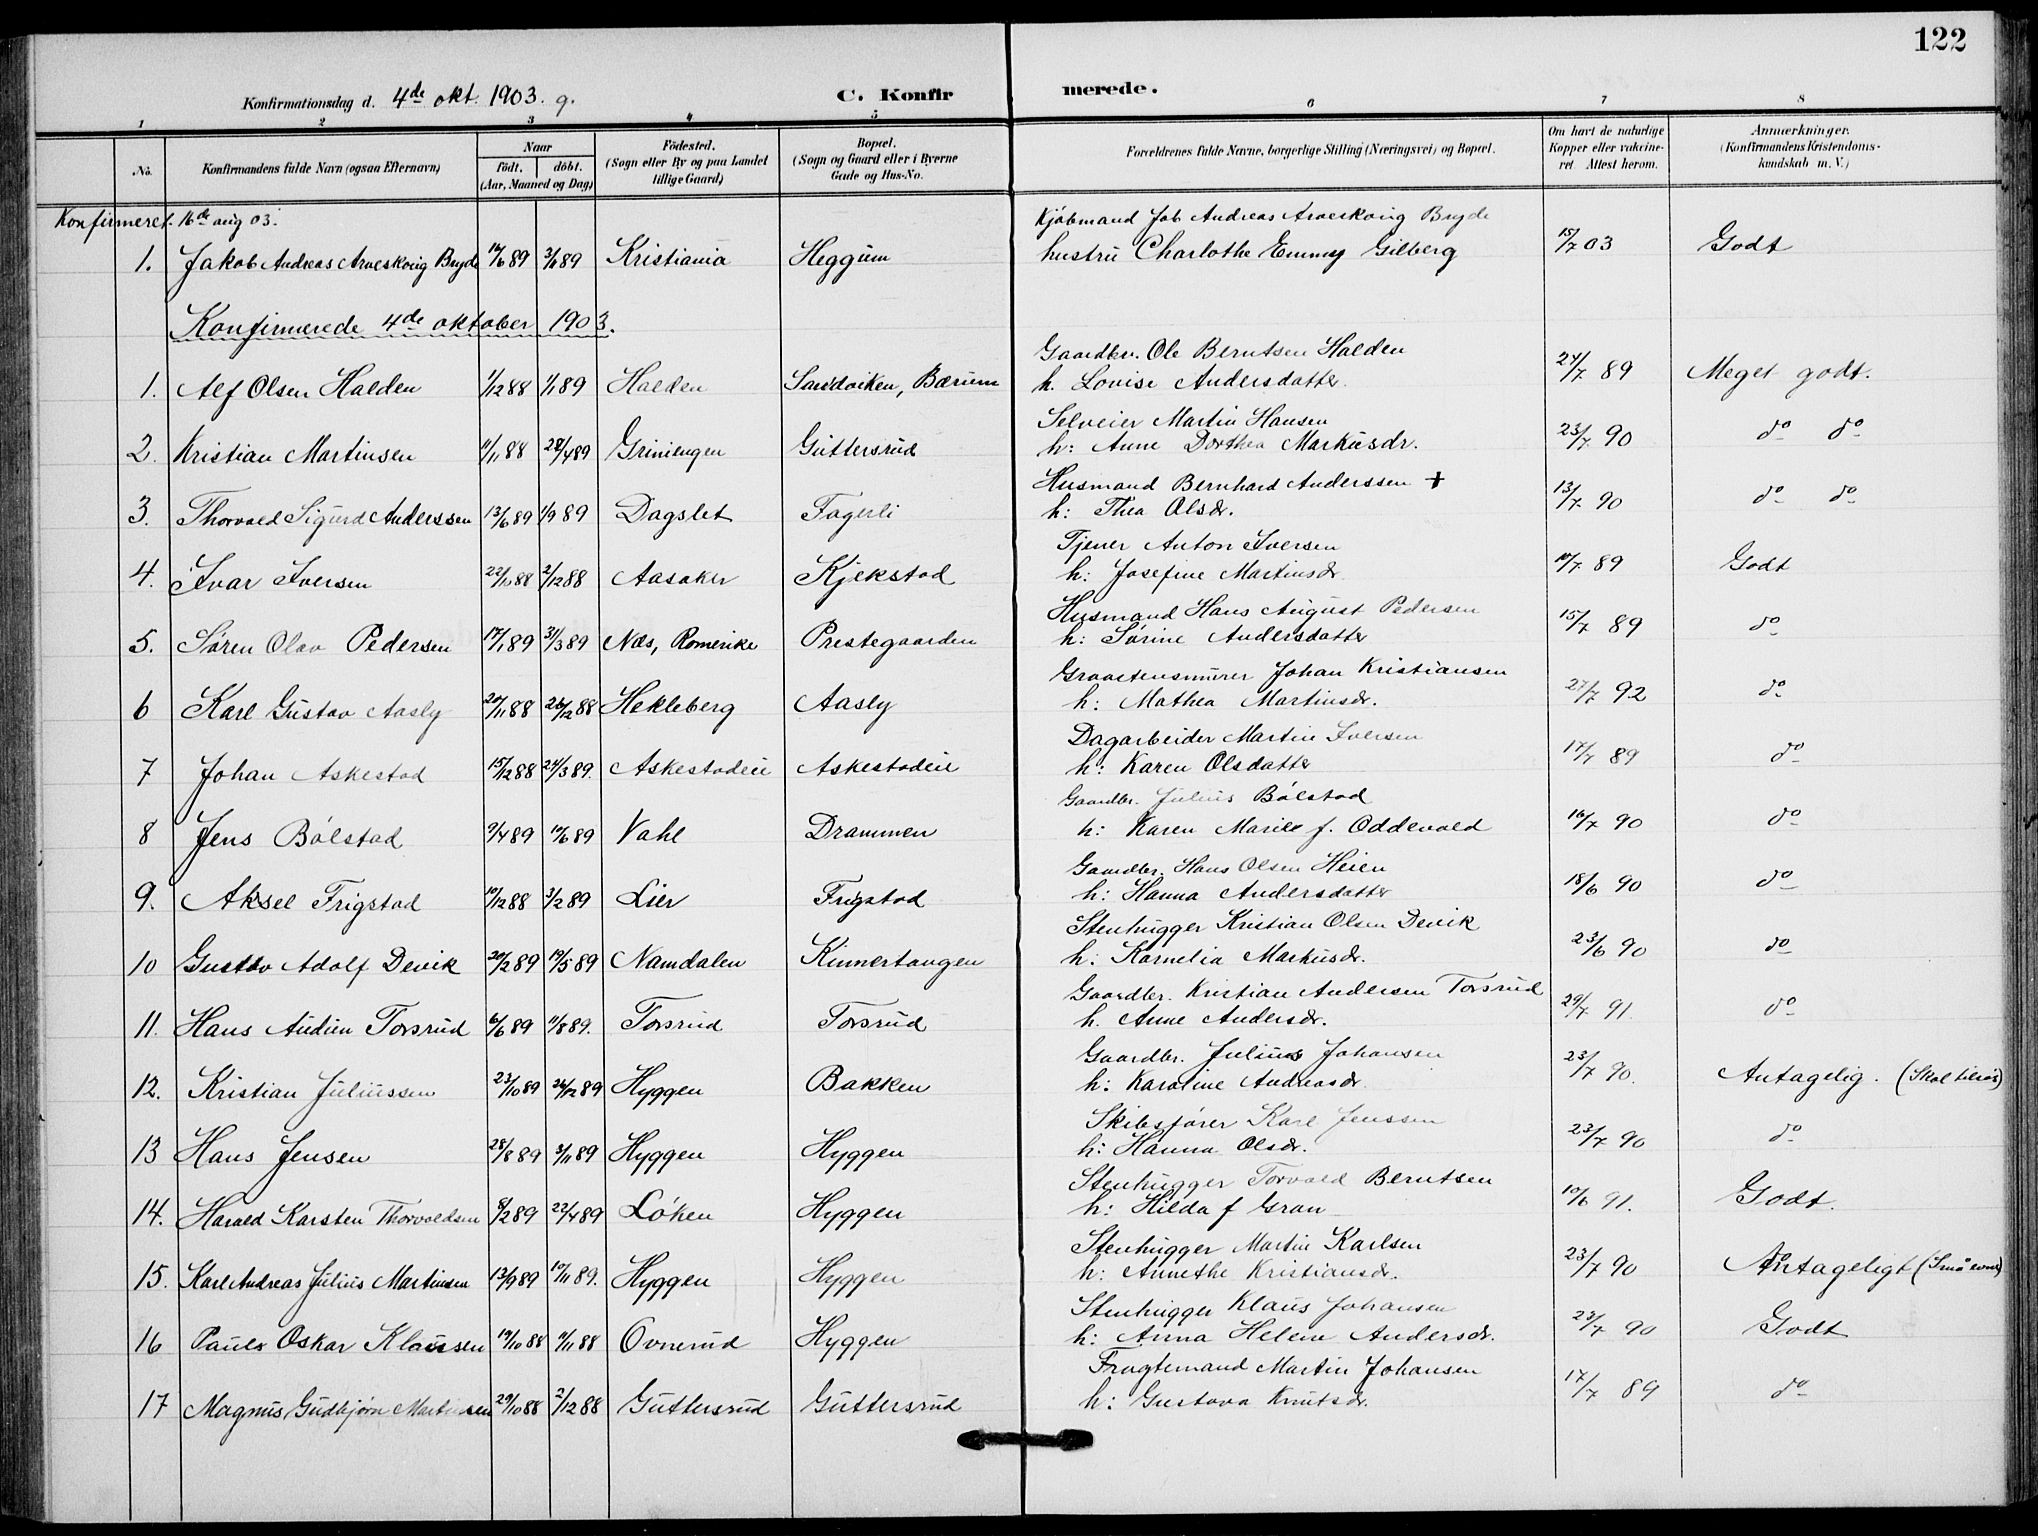 122
Konfirmationsdag d. 4de okt. 1903. g.
C. Konfir merede.
1 2 3 4 5 6 7 8
No. Konfirmandens fulde Navn (ogsaa Efternavn) Naar født, døbt. (Aar, Maaned og Dag) Fødested. (Sogn eller By og paa Landet tillige Gaard) Bopæl. (Sogn og Gaard eller i Byerne Gade og Hus-No. Forældrenes fulde Navne, borgerlige Stilling (Næringsvei) og Bopæl. Om havt de naturlige Kopper eller vakcineret. Attest herom. Anmærkninger. (Konfirmandens Kristendomskundskab m. V.)
Konfirmeret 16de aug 03.
Kjøbmand Jak Andreas Arveskoug Bryde
1. Jakob Andreas Arveskoug Bryde 89 89 Kristiania Heggum hustru Charlothe Emmy Gilberg 15/7 03 Godt
Konfirmerede 4de oktober 1903.
Gaardbr. Ole Berntsen Halden
1. Alf Olsen Halden 1/12 88 1/1 89 Halden Sandviken, Bærum h. Lovise Andersdatter. 24/7 89 Meget godt.
Selveier Martin Hansen
2. Kristian Martinsen 11/11 88 28/4 89 Griniengen Guttersrud h: Anne Dorthea Markusdr. 23/7 90 do do
Husmand Bernhard Anderssen +
3. Thorvald Sigurd Anderssen 13/6 89 1/9 89 Dagslet Fagerli h: Thea Olsdr. 13/7 90 do do
Tjener Anton Iversen
4. Ivar Iversen 22/10 88 2/12 88 Aasaker Kjekstad h: Josefine Martinsdr. 10/7 89 Godt
Husmand Hans August Pedersen
5. Søren Olav Pedersen 17/1 89 31/3 89 Næs, Romerike Prestegaarden h: Sørine Andersdatter 15/7 89 do
Graastensmurer Johan Kristiansen
6 Karl Gustav Aasly 20/11 88 26/12 88 Hekleberg Aasly h: Mathea Martinsdr. 27/7 92 do
Dagarbeider Martin Iversen
7 Johan Askestad 15/12 88 24/3 89. Askestadeie Askestadeie h: Karen Olsdatter 17/7 89 do
Gaardbr. Julius Bølstad
8 Jens Bølstad 9/4 89 10/6 89 Vahl Drammen h: Karen Marie f. Oddevald 16/7 90 do
Gaardbr. Hans Olsen Heien
9. Aksel Frigstad 10/12 88 3/2 89 Lier Frigstad h: Hanna Andersdatter 18/6 90 do
Stenhugger Kristian Olsen Devik
10 Gustav Adolf Devik 20/2 89 19/5 89 Namdalen Kinnertangen h: Kornelia Markusdr. 23/6 90 do
Gaardbr. Kristian Andersen Torsrud
11. Hans Audun Torsrud 6/6 89 11/8 89. Torsrud Torsrud h. Anne Andersdr. 29/7 91. do
Gaardbr. Julius Johansen
12. Kristian Juliussen 23/10 89 26/12 89 Hyggen Bakken h: Karoline Andreasdr. 23/7 90. Antagelig.
Skibsfører Karl Jenssen
13 Hans Jensen 28/8 89 3/11 89 Hyggen Hyggen h: Hanna Olsdr. 23/7 90 do
Stenhugger Torvald Berntsen
14. Harald Karsten Thorvaldsen 8/2 89 22/4 89 Løken Hyggen h: Hilda f Gran 10/6 91. Godt.
Stenhugger Martin Karlsen
15. Karl Andreas Julius Martinsen 13/9 89 10/11 89. Hyggen Hyggen h: Annethe Kristiansdr. 23/7 90 Antageligt (Små evner)
Stenhugger Klaus Johansen
16 Paul Oskar Klausen 19/10 88 11/11 88 Ovnerud Hyggen h: Anna Helene Andersdr. 23/7 90 Godt
Fragtemand Martin Johansen
17 Magnus Gudbjørn Martinsen 29/10 88 2/12 88 Guttersrud Guttersrud h: Gustava Knutsdr. 17/7 89 do